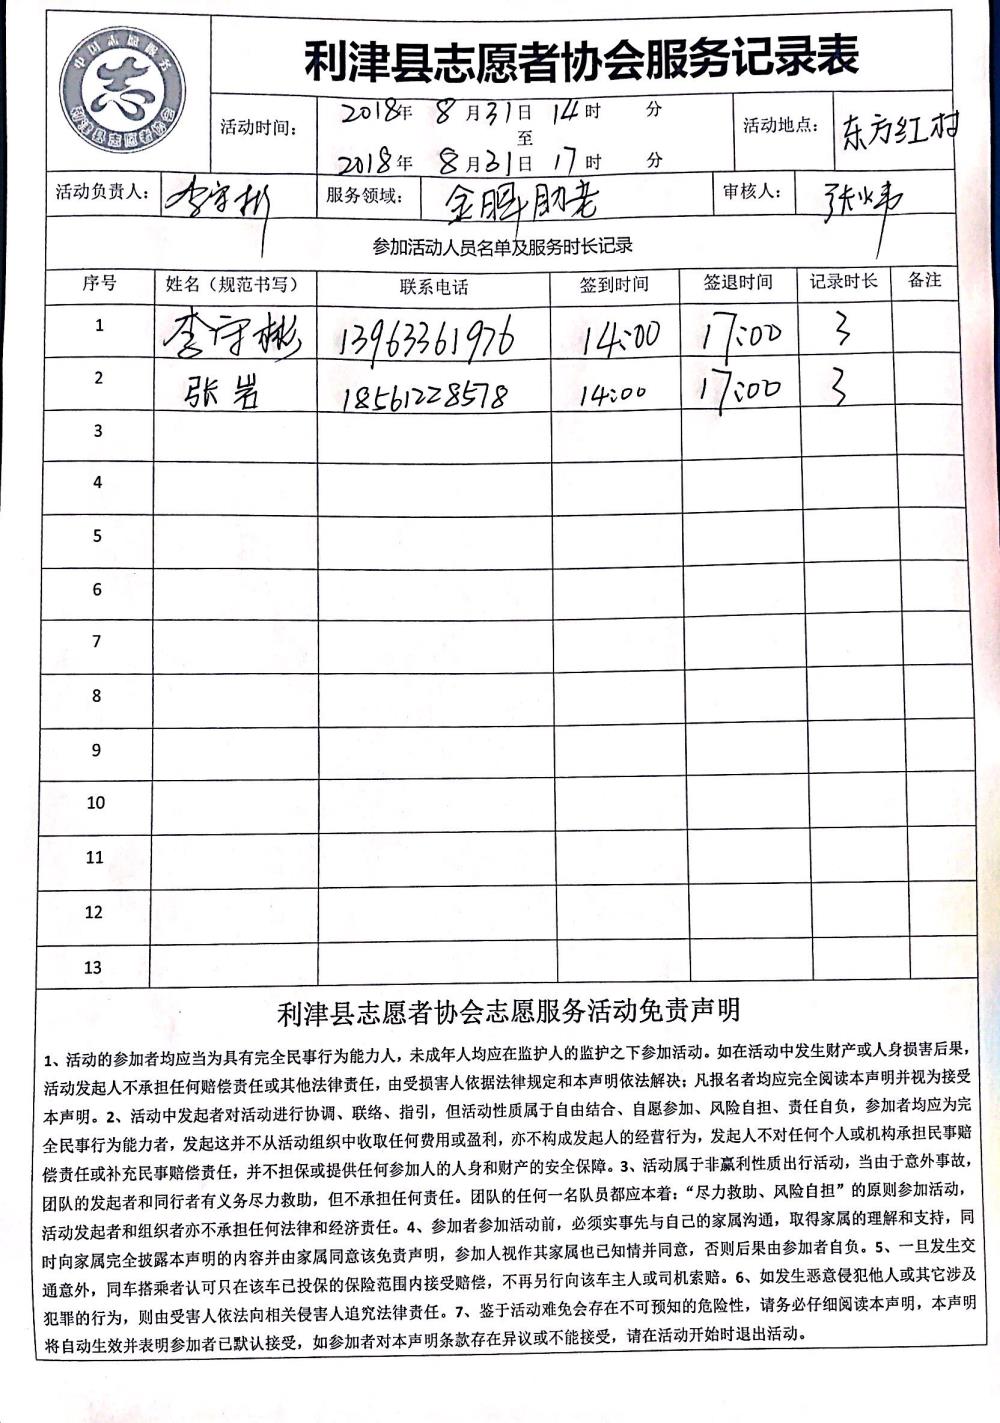 中国志愿服务
志
利津县志愿者协会
利津县志愿者协会服务记录表
活动时间：
2018年 8月31日 14时 分
至
2018年 8月31日 17时 分
活动地点： 东方红村
活动负责人： 李守彬 服务领域： 金晖助老 审核人： 张炜
参加活动人员名单及服务时长记录
序号 姓名（规范书写） 联系电话 签到时间 签退时间 记录时长 备注
1 李守彬 13963361976 14:00 17:00 3
2 张岩 18561228578 14:00 17:00 3
3
4
5
6
7
8
9
10
11
12
13
利津县志愿者协会志愿服务活动免责声明
1、活动的参加者均应当为具有完全民事行为能力人，未成年人均应在监护人的监护之下参加活动。如在活动中发生财产或人身损害后果，
活动发起人不承担任何赔偿责任或其他法律责任，由受损害人依据法律规定和本声明依法解决；凡报名者均应完全阅读本声明并视为接受
本声明。2、活动中发起者对活动进行协调、联络、指引，但活动性质属于自由结合、自愿参加、风险自担、责任自负，参加者均应为完
全民事行为能力者，发起这并不从活动组织中收取任何费用或盈利，亦不构成发起人的经营行为，发起人不对任何个人或机构承担民事赔
偿责任或补充民事赔偿责任，并不担保或提供任何参加人的人身和财产的安全保障。3、活动属于非赢利性质出行活动，当由于意外事故，
团队的发起者和同行者有义务尽力救助，但不承担任何责任。团队的任何一名队员都应本着：“尽力救助、风险自担”的原则参加活动，
活动发起者和组织者亦不承担任何法律和经济责任。4、参加者参加活动前，必须实事先与自己的家属沟通，取得家属的理解和支持，同
时向家属完全披露本声明的内容并由家属同意该免责声明，参加人视作其家属也已知情并同意，否则后果由参加者自负。5、一旦发生交
通意外，同车搭乘者认可只在该车已投保的保险范围内接受赔偿，不再另行向该车主人或司机索赔。6、如发生恶意侵犯他人或其它涉及
犯罪的行为，则由受害人依法向相关侵害人追究法律责任。7、鉴于活动难免会存在不可预知的危险性，请务必仔细阅读本声明，本声明
将自动生效并表明参加者已默认接受，如参加者对本声明条款存在异议或不能接受，请在活动开始时退出活动。